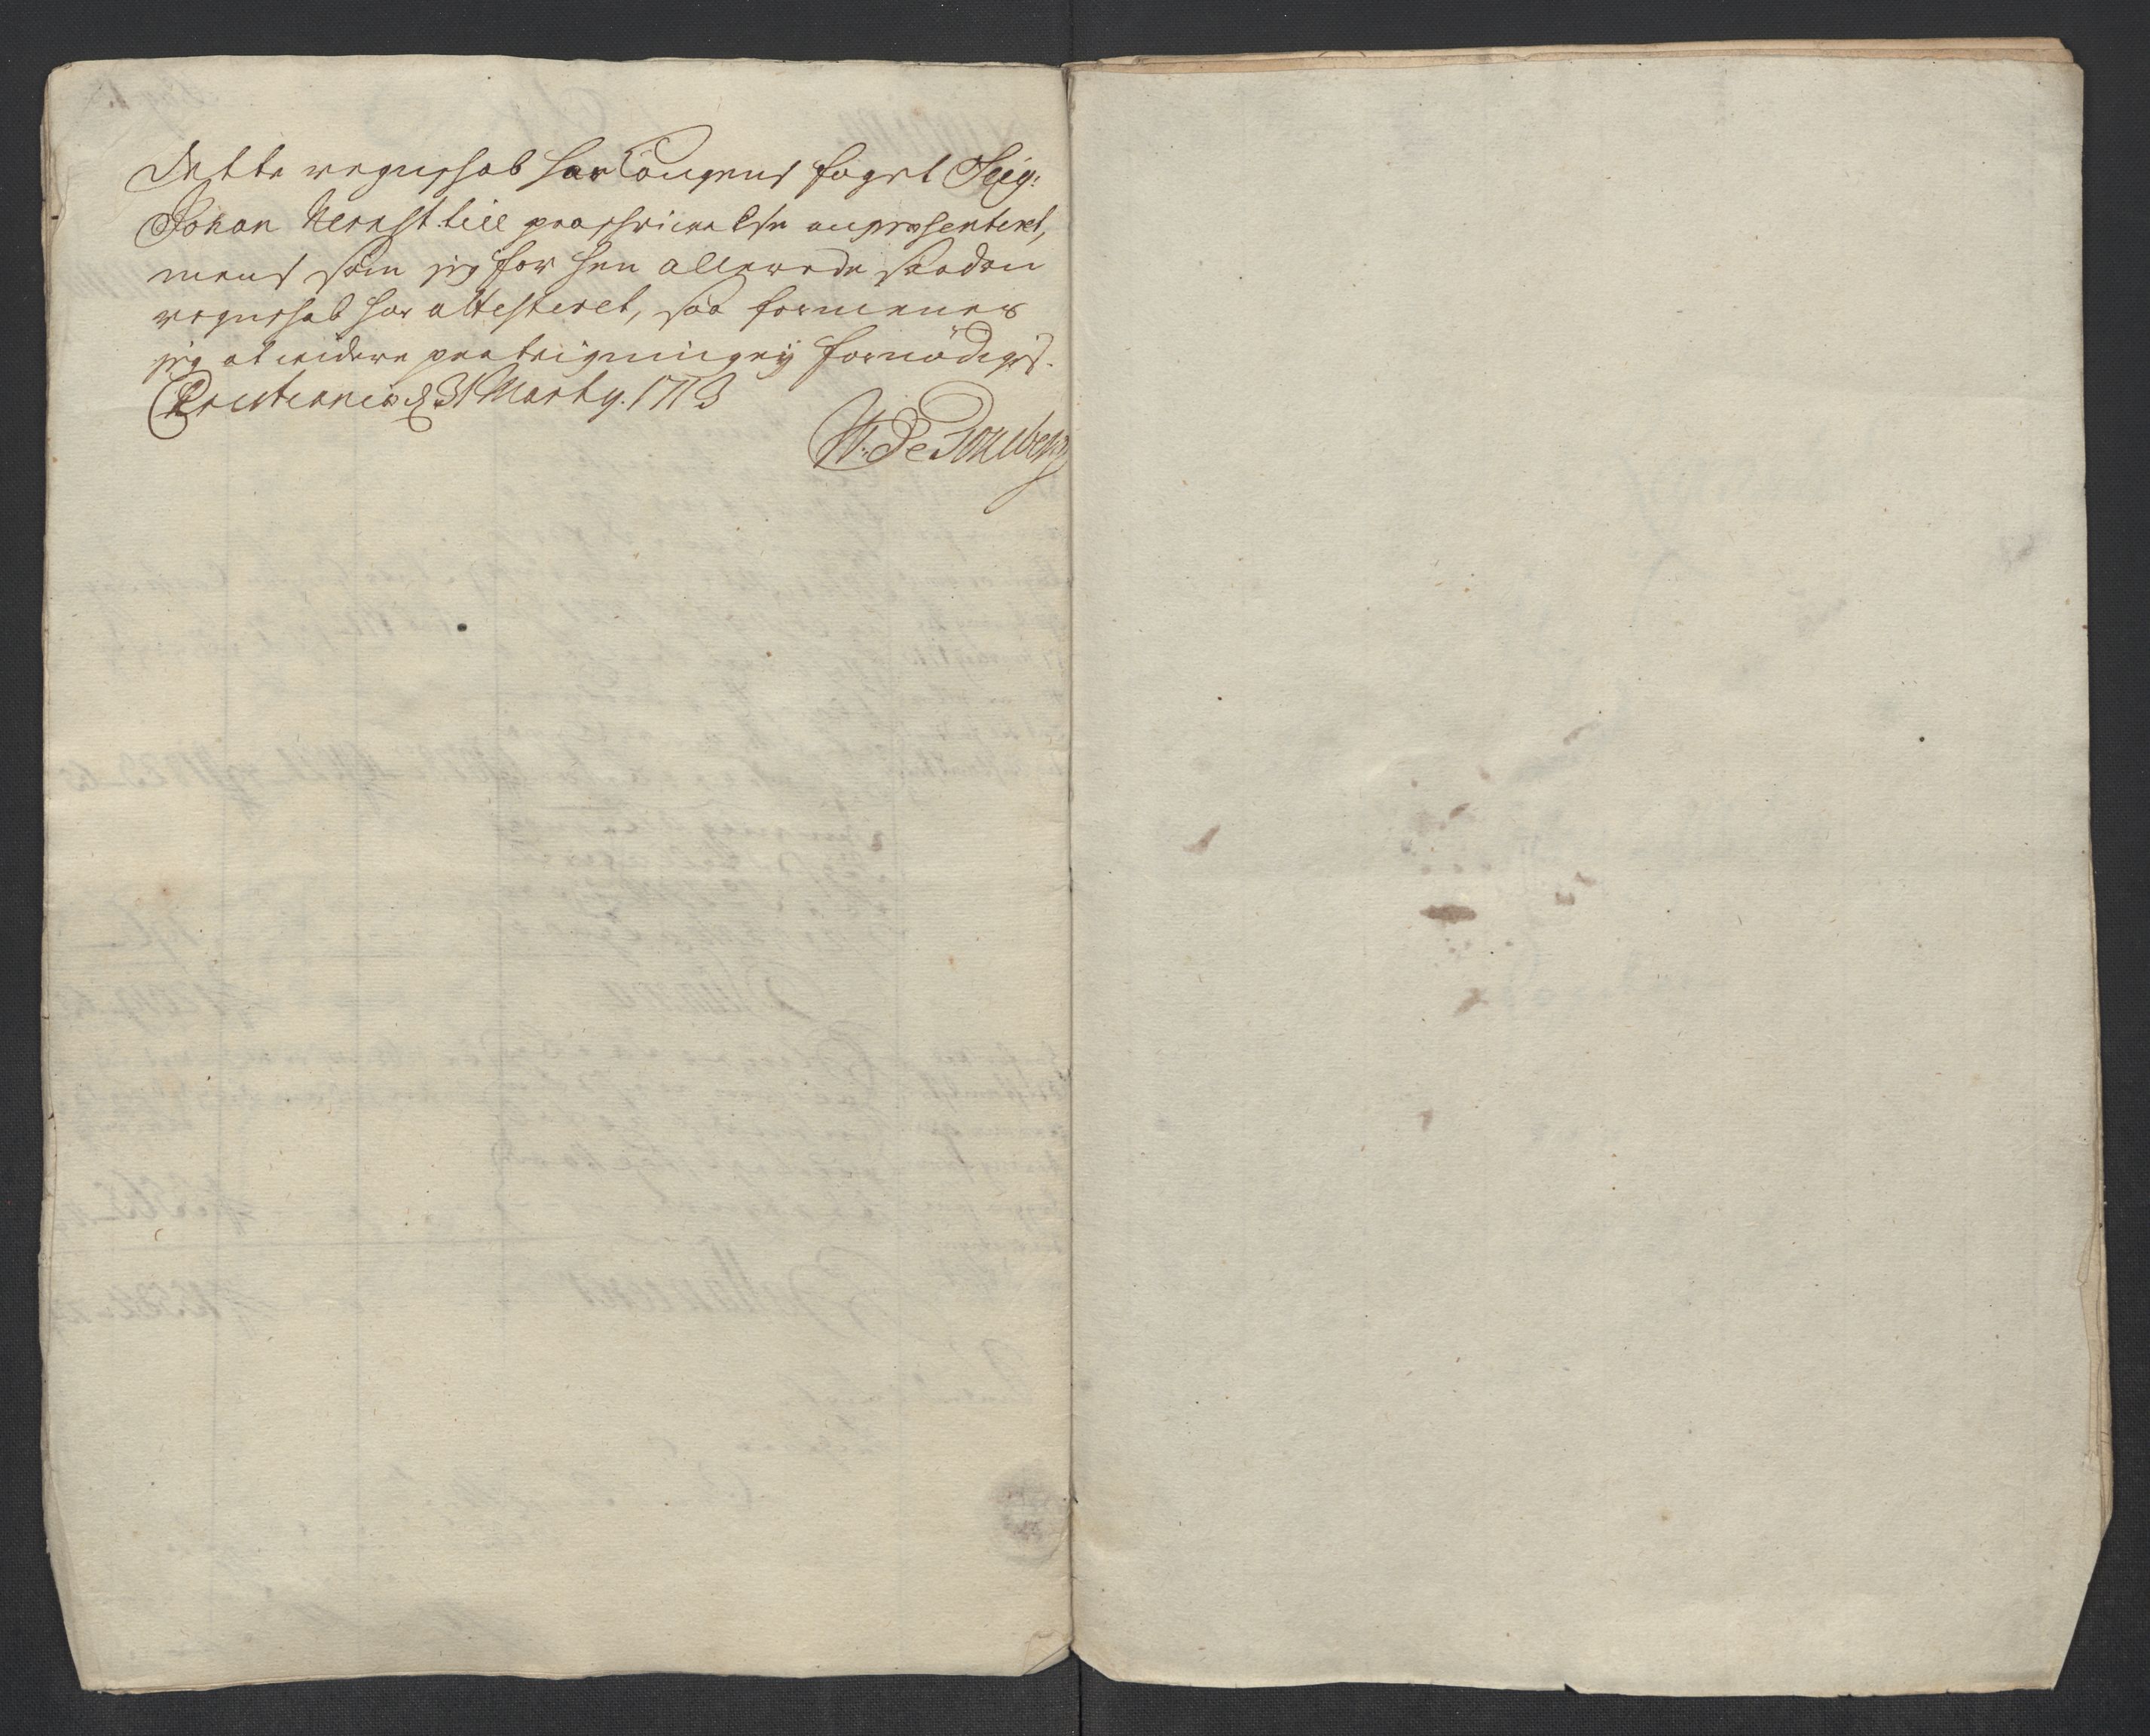 Dette regnskab har Kongens foget Seig:
Johan Mernst till paaskrivelse anpræsenteret,
mens som jeg for hen allerede saadan
regnskab har attesteret, saa formener
jeg at videre paateigning ey fornödiges.
Christiania d 31 Marty. 1713
W: De Tonsberg